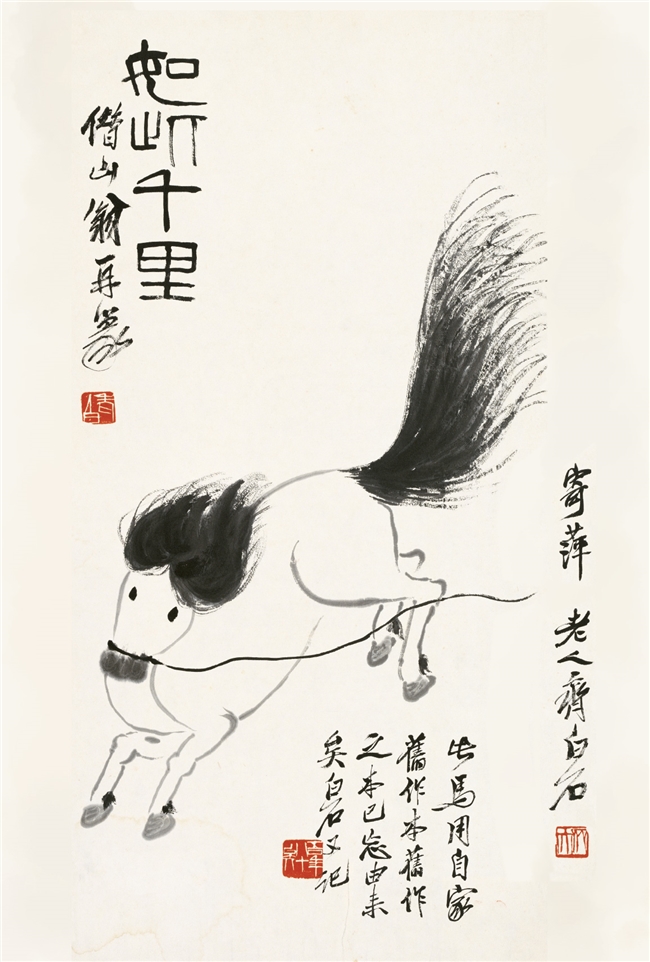 如此千里
借山翁再篆
寄萍老人齊白石
此馬用自家
舊作本舊作
之本已忘由來
矣白石又記